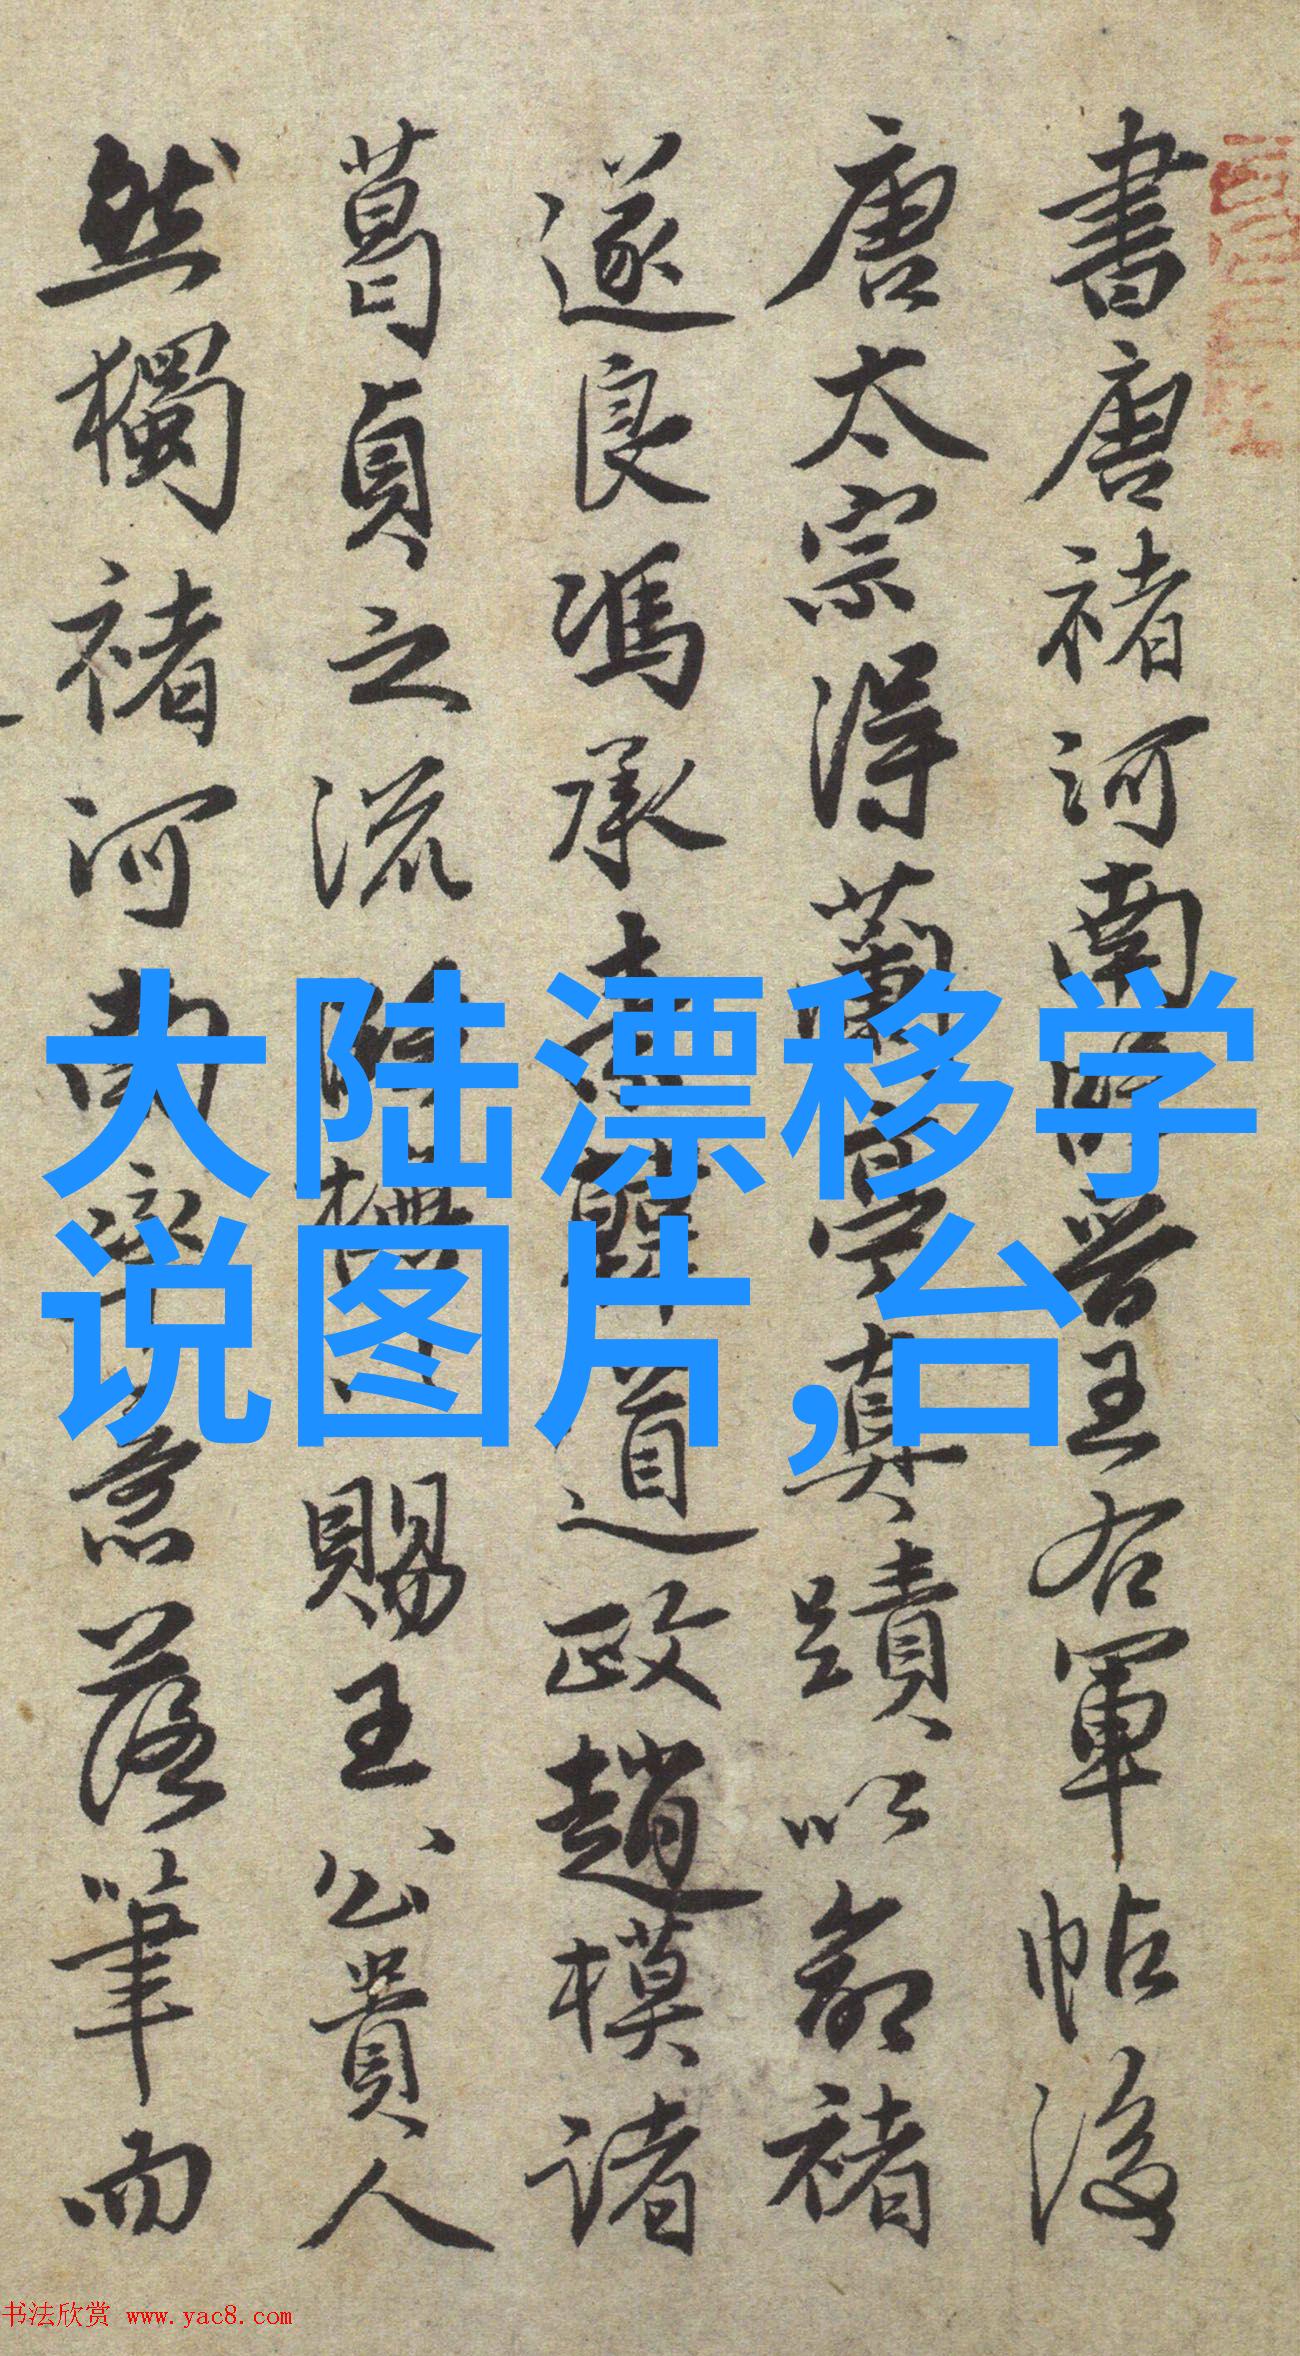 書唐褚河南臨晉王右軍帖後
唐太宗得蘭亭真蹟以命褚
遂良馮承素韓道政趙模諸
葛貞之流賜王公貴人
然獨褚河南落筆而
大陆漂移学
说图片,台
书法欣赏 www.yac8.com